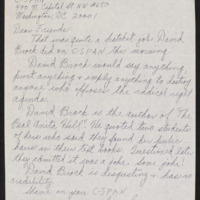 400 N. Capitol St NW #650
Washington, DC 20001
Dear Friends:
That was quite a hatchet job David
Brock did on C-SPAN this morning.
David Brock would say anything,
print anything & imply anything to destroy
anyone who opposes the radical right
agenda.
David Brock is the author of "The
Real Anita Hill." He quoted two students
of hers who said they found her pubic
hairs in their test books. Questioned later,
they admitted it was a joke. Some joke!
David Brock is disgusting & has no
credibility.
Shame on you C-SPAN